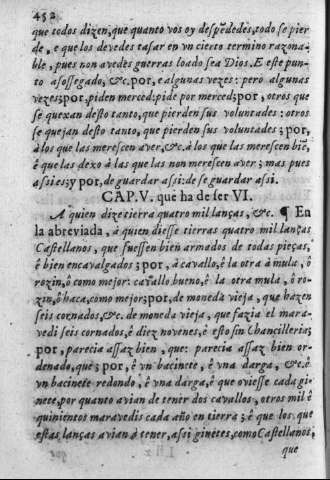 452
que todos dizen, que quanto vos oy despẽdedes, todo se pier
de, e que los devedes tasar en vn cierto termino razona-
ble, pues non avedes guerras loado sea Dios. E este pun-
to asossegado, &c. por, e algunas vezes: pero algunas
vezes; por, piden merced: pide por merced; por, otros que
se quexan desto tanto, que pierden sus voluntades: otros
se quejan desto tanto, que pierden sus voluntades; por,
à los que las merescen aver, &c. à los que las merescen biẽ,
é que las dexo à las que las non merescen aver; mas pues
assi es; y por, de guardar assi: de se guardar assi.
CAP. V. que ha de ser VI.
A quien dize tierra quatro mil lanças, &c. ¶ En
la abreviada, à quien diesse tierras quatro mil lanças
Castellanos, que fuessen bien armados de todas pieças,
é bien encavalgados; por, à cavallo, è la otra à mula, ò
rozin, ò como mejor: cavallo bueno, è la otra mula, ò ro-
zin, ò haca, como mejor; por, de moneda vieja, que hazen
seis cornados, &c. de moneda vieja, que fazia el mara-
vedi seis cornados, è diez novenes, è esto sin Chancilleria;
por, parecia assaz bien, que: parecia assaz bien or-
denado, que; por, è vn bacinete, è vna darga, &c. è
vn bacinete redondo, è vna darga, è que oviesse cada gi-
nete, por quanto avian de tener dos cavallos, otros mil è
quinientos maravedis cada año en tierra; è que los que
estas lanças avian à tener, assi ginetes, como Castellanos,
que